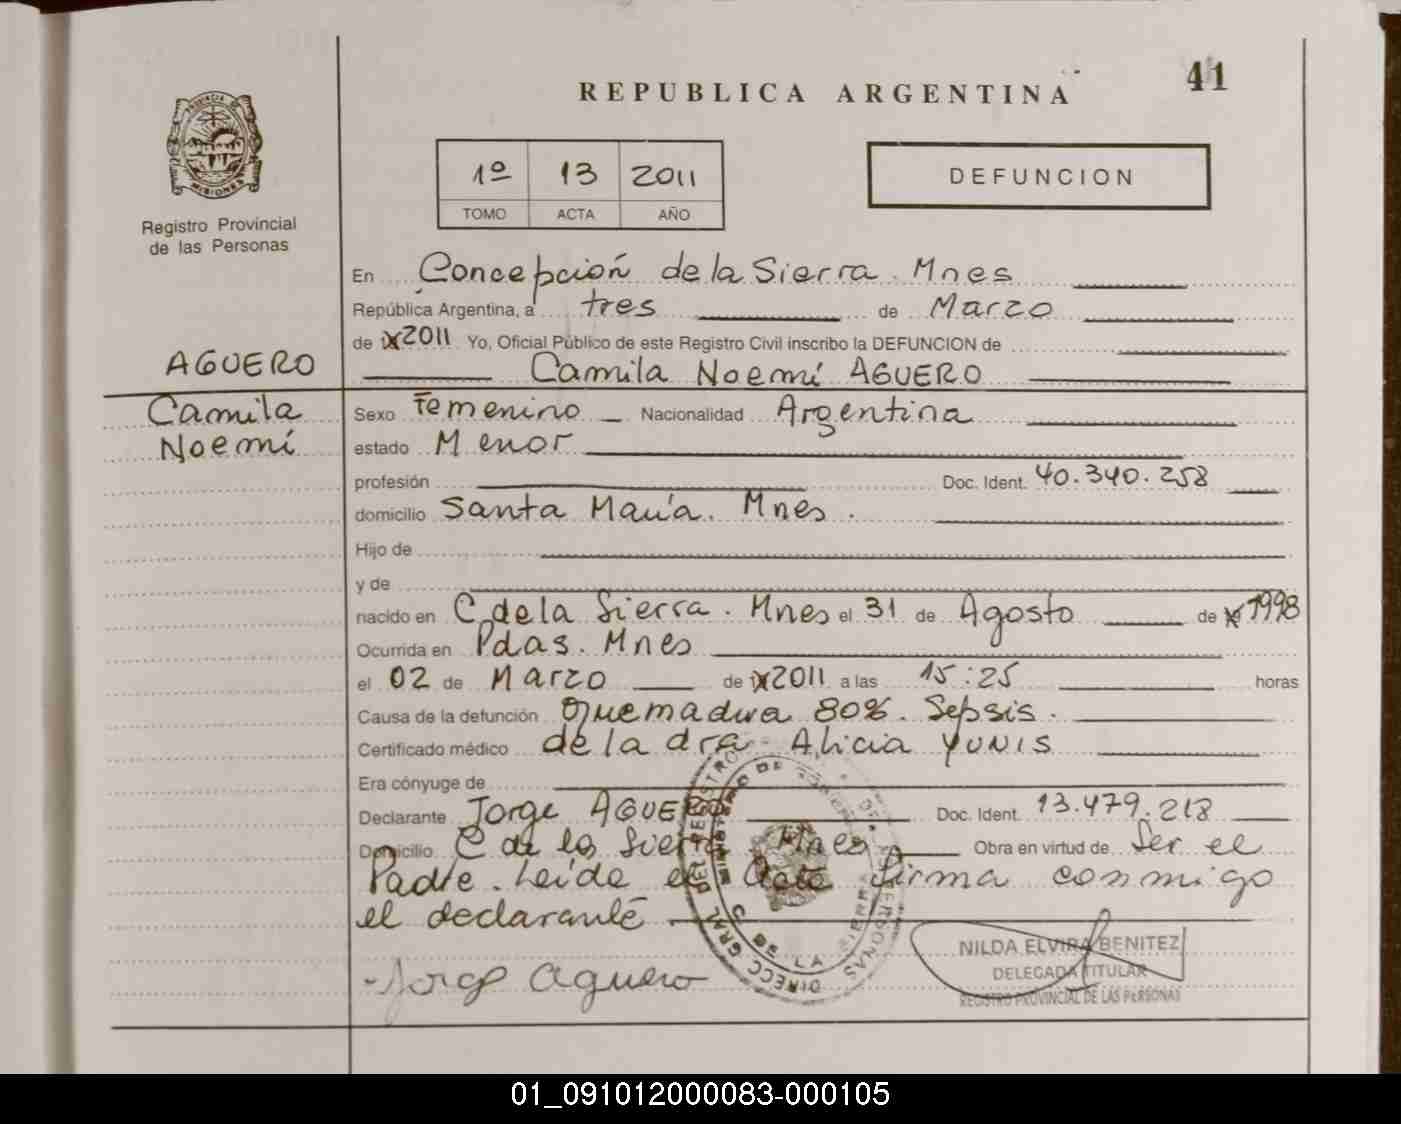 REPUBLICA ARGENTINA
41
PROVINCIA DE
MISIONES
Registro Provincial
de las Personas
1º 13 2011
TOMO ACTA AÑO
DEFUNCION
En Concepción de la Sierra. Mnes
República Argentina, a tres de Marzo
de 2011 Yo, Oficial Público de este Registro Civil inscribo la DEFUNCION de
AGUERO
Camila Noemí AGUERO
Camila
Noemí
Sexo Femenino Nacionalidad Argentina
estado Menor
profesión Doc. Ident. 40.340.258
domicilio Santa María. Mnes.
Hijo de
y de
nacido en C. de la Sierra. Mnes el 31 de Agosto de 1998
Ocurrida en Pdas. Mnes
el 02 de Marzo de 2011 a las 15:25 horas
Causa de la defunción Quemadura 80%. Sepsis.
Certificado médico de la dra. Alicia YUNIS
Era cónyuge de
Declarante Jorge AGUERO Doc. Ident. 13.479.218
Domicilio C de la Sierra Mnes Obra en virtud de Ser el
Padre. Leída el Acta firma conmigo
el declarante
Jorge Aguero
DIRECC GRAL DEL REGISTRO PERSONAS
MINISTERIO DE
C DE LA SIERRA
NILDA ELVIRA BENITEZ
DELEGADA TITULAR
REGISTRO PROVINCIAL DE LAS PERSONAS
01_091012000083-000105